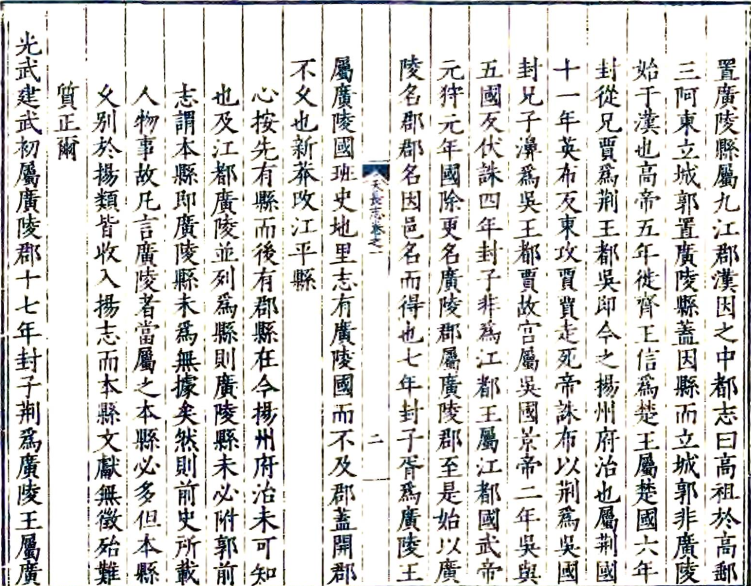 置廣陵縣屬九江郡漢因之中都志曰高祖於高郵
三阿東立城郭置廣陵縣蓋因縣而立城郭非廣陵
始于漢也高帝五年徙齊王信爲楚王屬楚國六年
封從兄賈爲荆王都吳即今之揚州府治也屬荆國
十一年英布反東攻賈賈走死帝誅布以荆爲吳國
封兄子濞爲吳王都賈故宫屬吳國景帝二年吳與
五國反伏誅四年封子非爲江都王屬江都國武帝
元狩元年國除更名廣陵郡屬廣陵郡至是始以廣
陵名郡郡名因邑名而得也七年封子胥爲廣陵王
天長志卷之一
二
屬廣陵國班史地里志有廣陵國而不及郡蓋開郡
不乆也新莽改江平縣
心按先有縣而後有郡縣在今揚州府治未可知
也及江都廣陵並列爲縣則廣陵縣未必附郭前
志謂本縣即廣陵縣未爲無據矣然則前史所載
人物事故凡言廣陵者當屬之本縣必多但本縣
乆别於揚類皆收入揚志而本縣文獻無徵殆難
質正爾
光武建武初屬廣陵郡十七年封子荆爲廣陵王屬廣